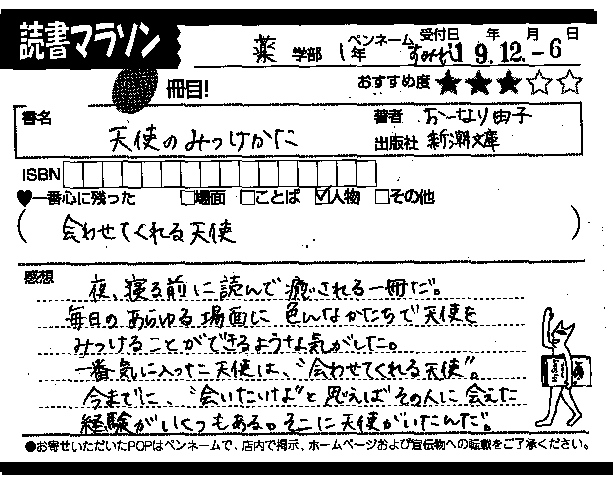 読書マラソン
薬 学部 1年 ペンネーム すみれ 受付日 年 月 日 19.12.-6
冊目!
おすすめ度 ★★★☆☆
書名 天使のみつけかた
著者 おーなり由子
出版社 新潮文庫
ISBN
♥一番心に残った □場面 □ことば ☑人物 □その他
(会わせてくれる天使)
感想
夜、寝る前に読んで癒される一冊だ。
毎日のあらゆる場面に色んなかたちで天使を
みつけることができるような気がした。
一番気に入った天使は、"会わせてくれる天使"。
今までに、"会いたいよ"と思えばその人に会えた
経験がいくつもある。そこに天使がいたんだ。
●お寄せいただいたPOPはペンネームで、店内で掲示、ホームページおよび宣伝物への転載をご了承ください。